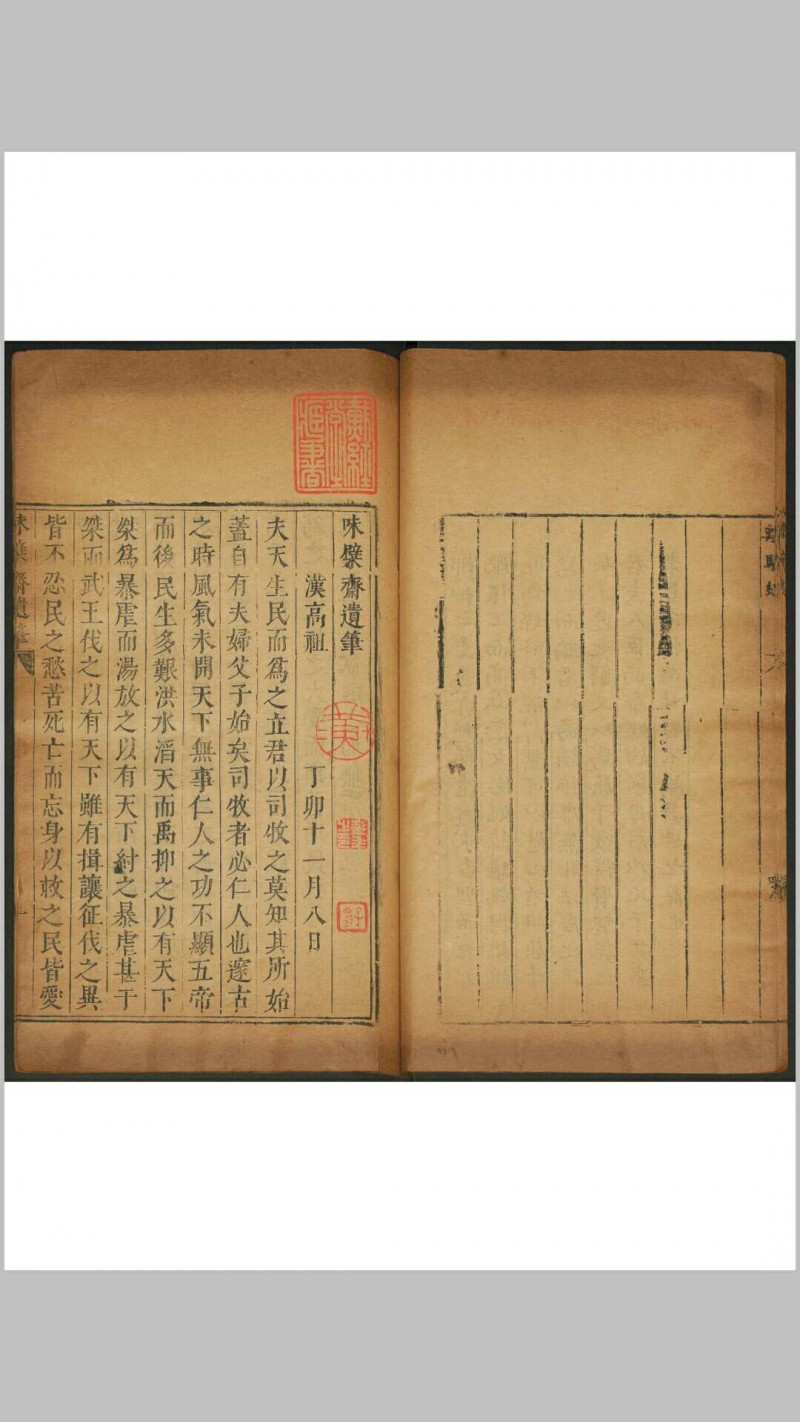 味檗齋遺筆
漢高祖 丁卯十一月八日
夫天生民而爲之立君以司牧之莫知其所始
蓋自有夫婦父子始矣司牧者必仁人也邃古
之時風氣未開天下無事仁人之功不顯五帝
而後民生多艱洪水滔天而禹抑之以有天下
桀爲暴虐而湯放之以有天下紂之暴虐甚于
桀而武王伐之以有天下雖有揖讓征伐之異
皆不忍民之愁苦死亡而忘身以救之民皆愛
味檗齋遺筆